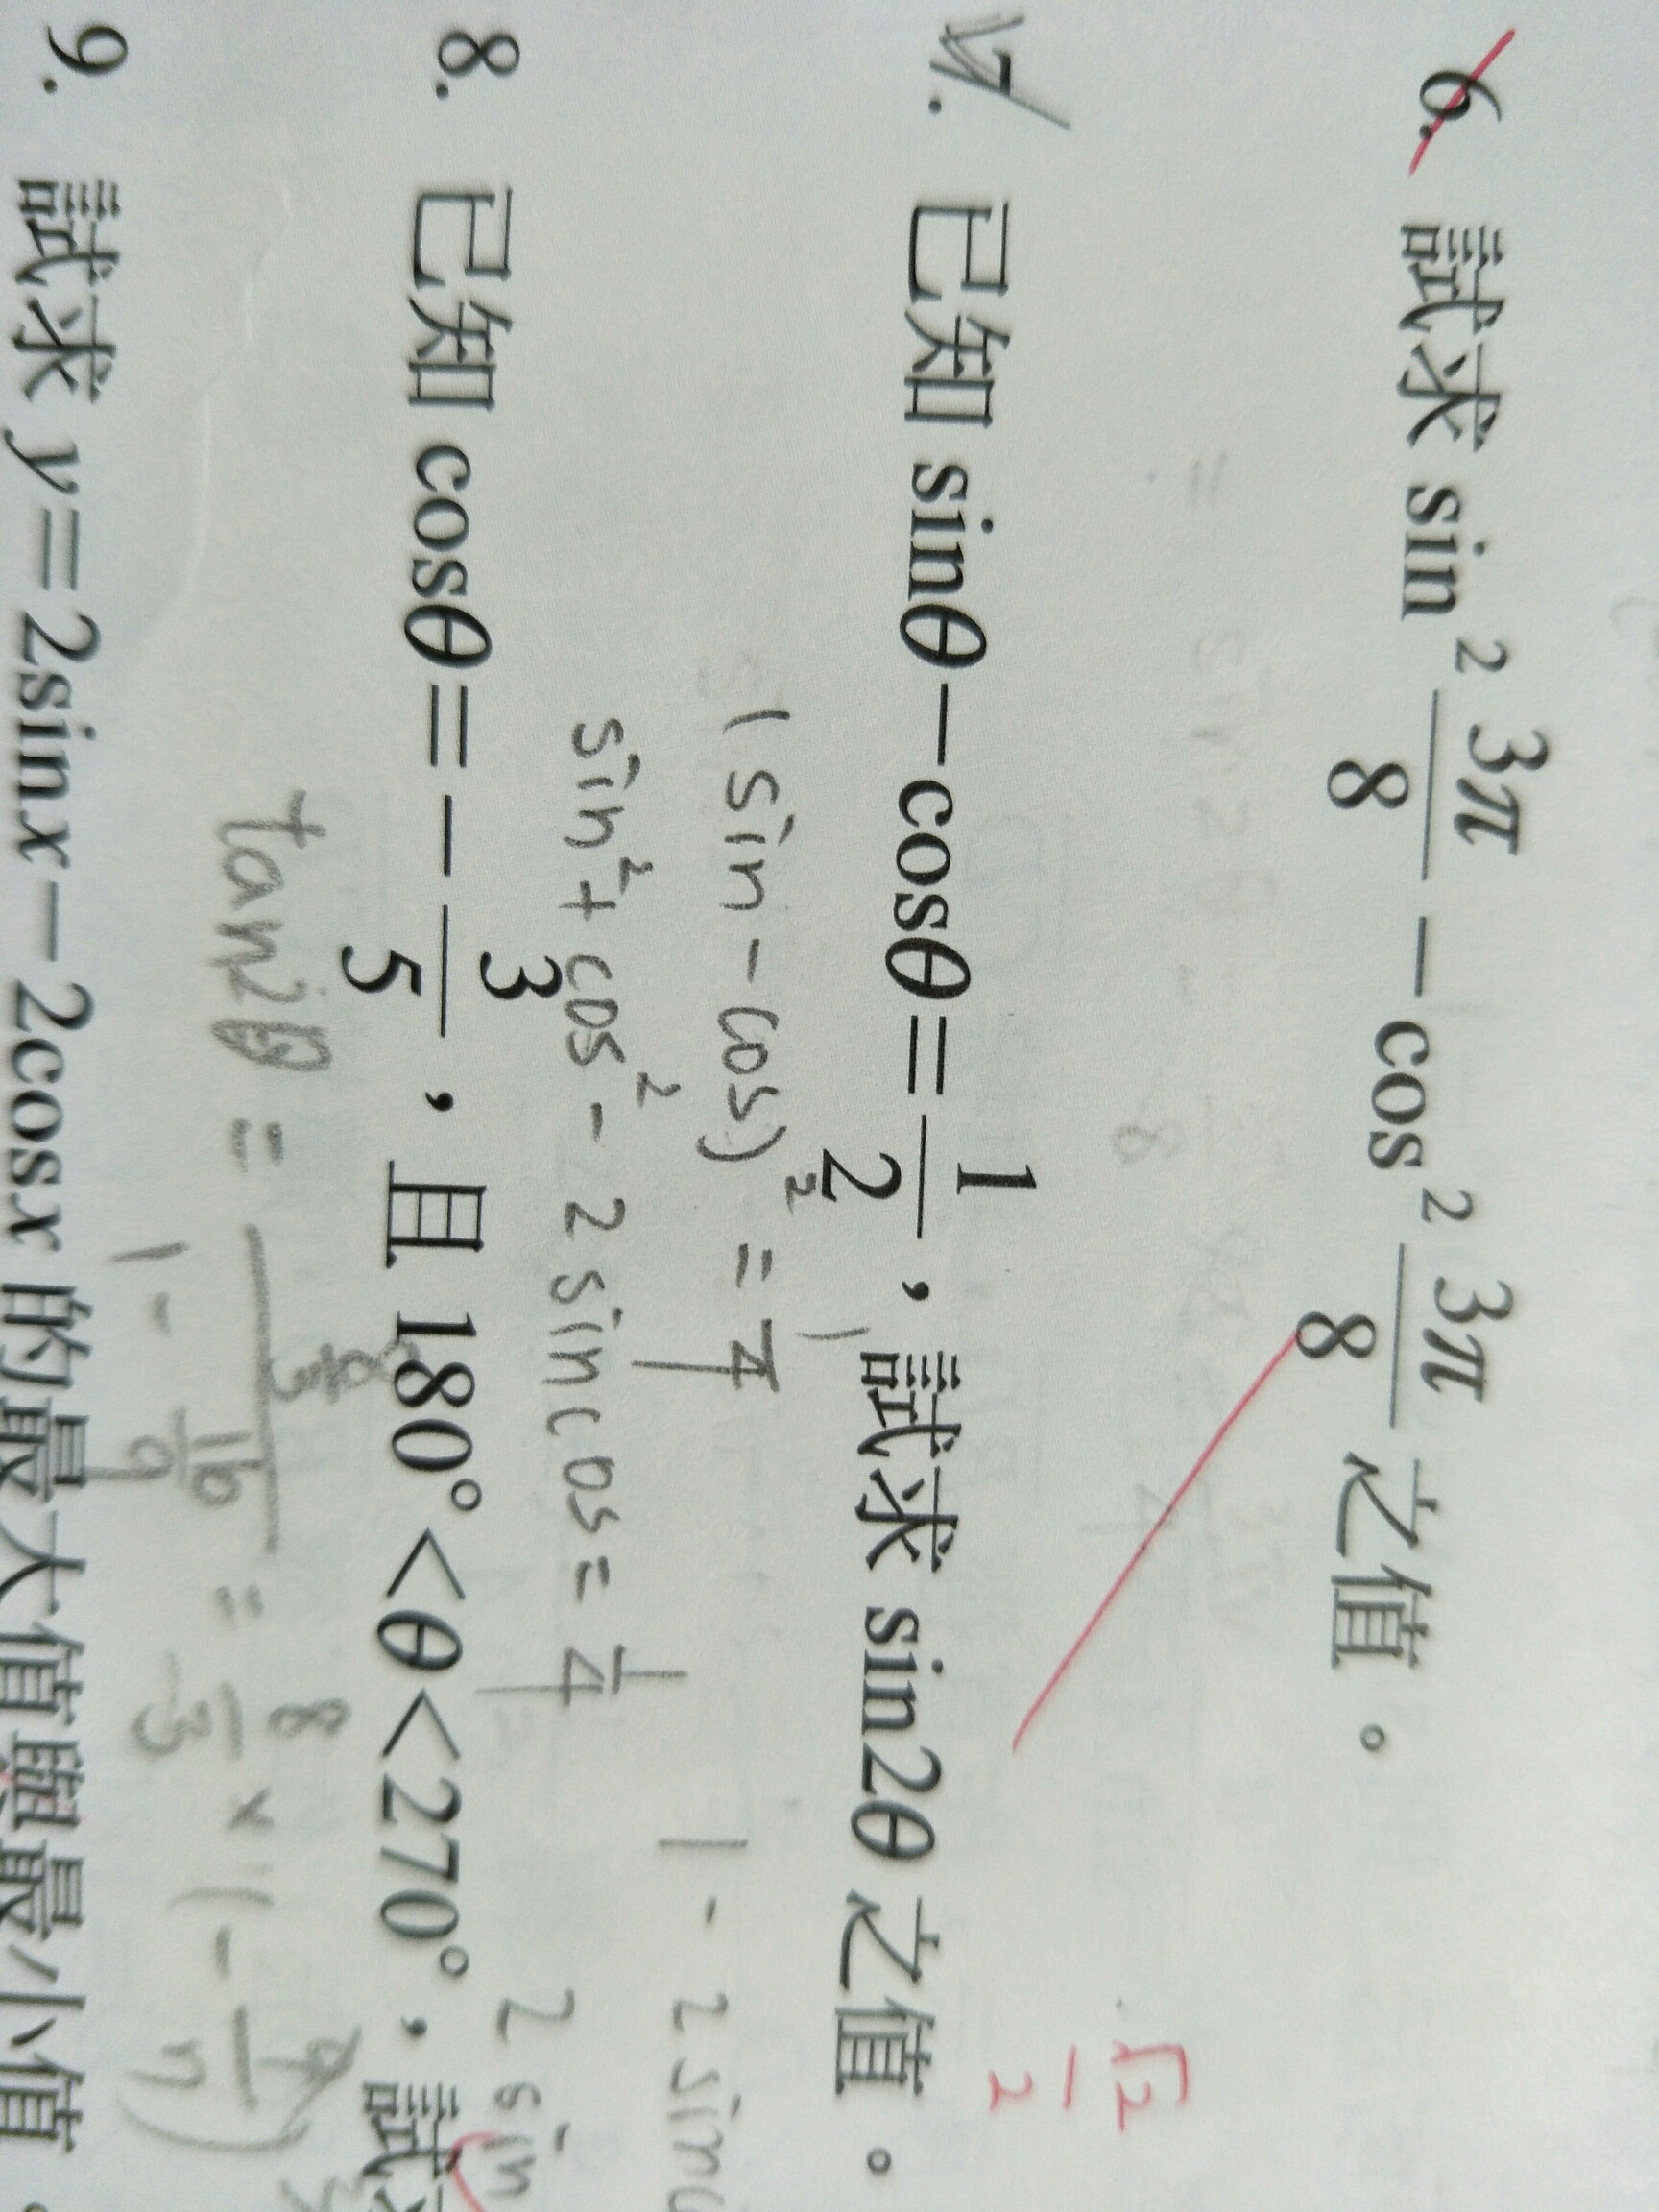 6. 試求 sin² 3π/8 − cos² 3π/8 之值。
√2/2
7. 已知 sinθ − cosθ = 1/2，試求 sin2θ 之值。
(sin − cos)² = 1/4
1 - 2 sin
sin² + cos² − 2 sin cos = 1/4
2 sin
8. 已知 cosθ = − 3/5，且 180° < θ < 270°，試
tan2θ =
1 - 16/9
= 8/3 × (-
9. 試求 y = 2sinx − 2cosx 的最大值與最小值。